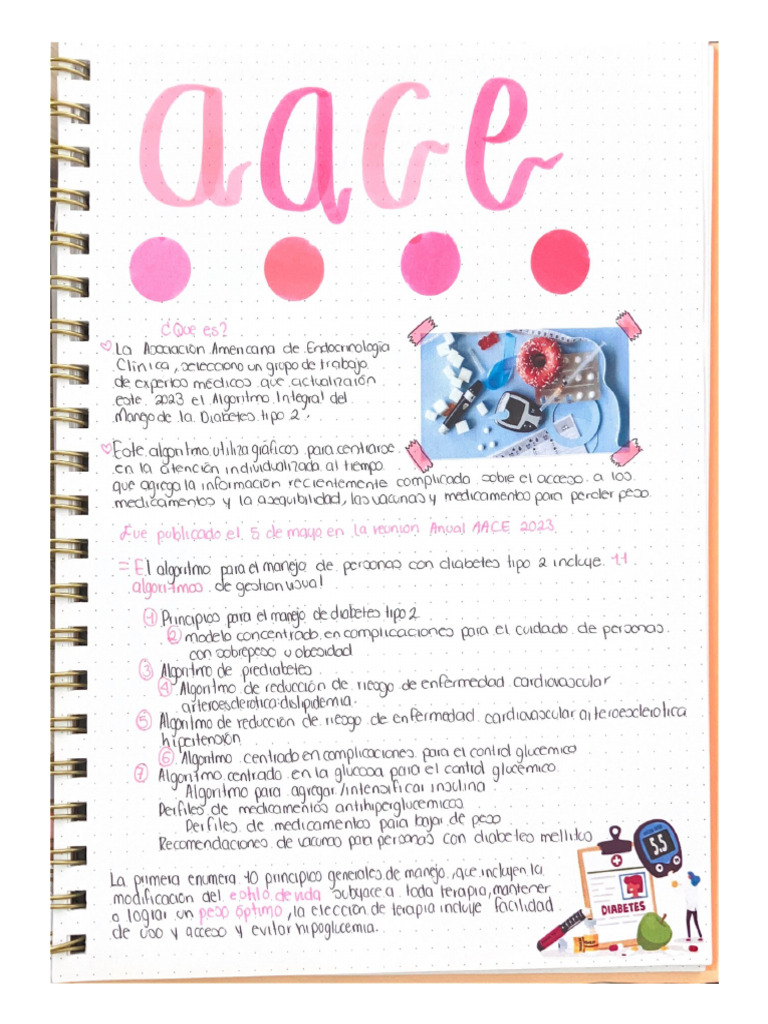 aace
¿Que es?
La Asociación Americana de Endocrinologia
Clínica, selecciono un grupo de trabajo
de expertos médicos que actualización
este 2023 el Algoritmo Integral del
Mango de la Diabetes tipo 2.
Este algoritmo utiliza gráficos para centrarse
en la atención individualizada al tiempo
que agrego la información recientemente complicado sobre el acceso a los
medicamentos y la asequibilidad, las vacunas y medicamentos para perder peso
Fue publicado el 5 de mayo en la reunion Anual AACE 2023.
= El algoritmo para el manejo de personas con diabetes tipo 2 incluye 11
algoritmos de gestion usual
1 Principios para el manejo de diabetes tipo 2
2 modelo concentrado en complicaciones para el cuidado de personas
con sobrepeso u obesidad
3 Algoritmo de prediabetes
4 Algoritmo de reducción de riesgo de enfermedad cardiovascular
arteroesclerotica: dislipidemia.
5 Algoritmo de reducción de riesgo de enfermedad cardiovascular arteroesclerotica
hipertensión
6 Algoritmo centrado en complicaciones para el control glucemico
7 Algoritmo centrado en la glucosa para el control glucémico.
Algoritmo para agregar/intensificar insulina
Perfiles de medicamentos antihiperglucemicos
Perfiles de medicamentos para bajar de peso
Recomendaciones de vacunas para personas con diabetes mellitus
5.5
DIABETES
La primera enumera 10 principios generales de manejo, que incluyen la
modificación del estilo de vida subyace a toda terapia, mantener
o lograr un peso óptimo, la elección de terapia incluye facilidad
de uso y acceso y evitar hipoglucemia.